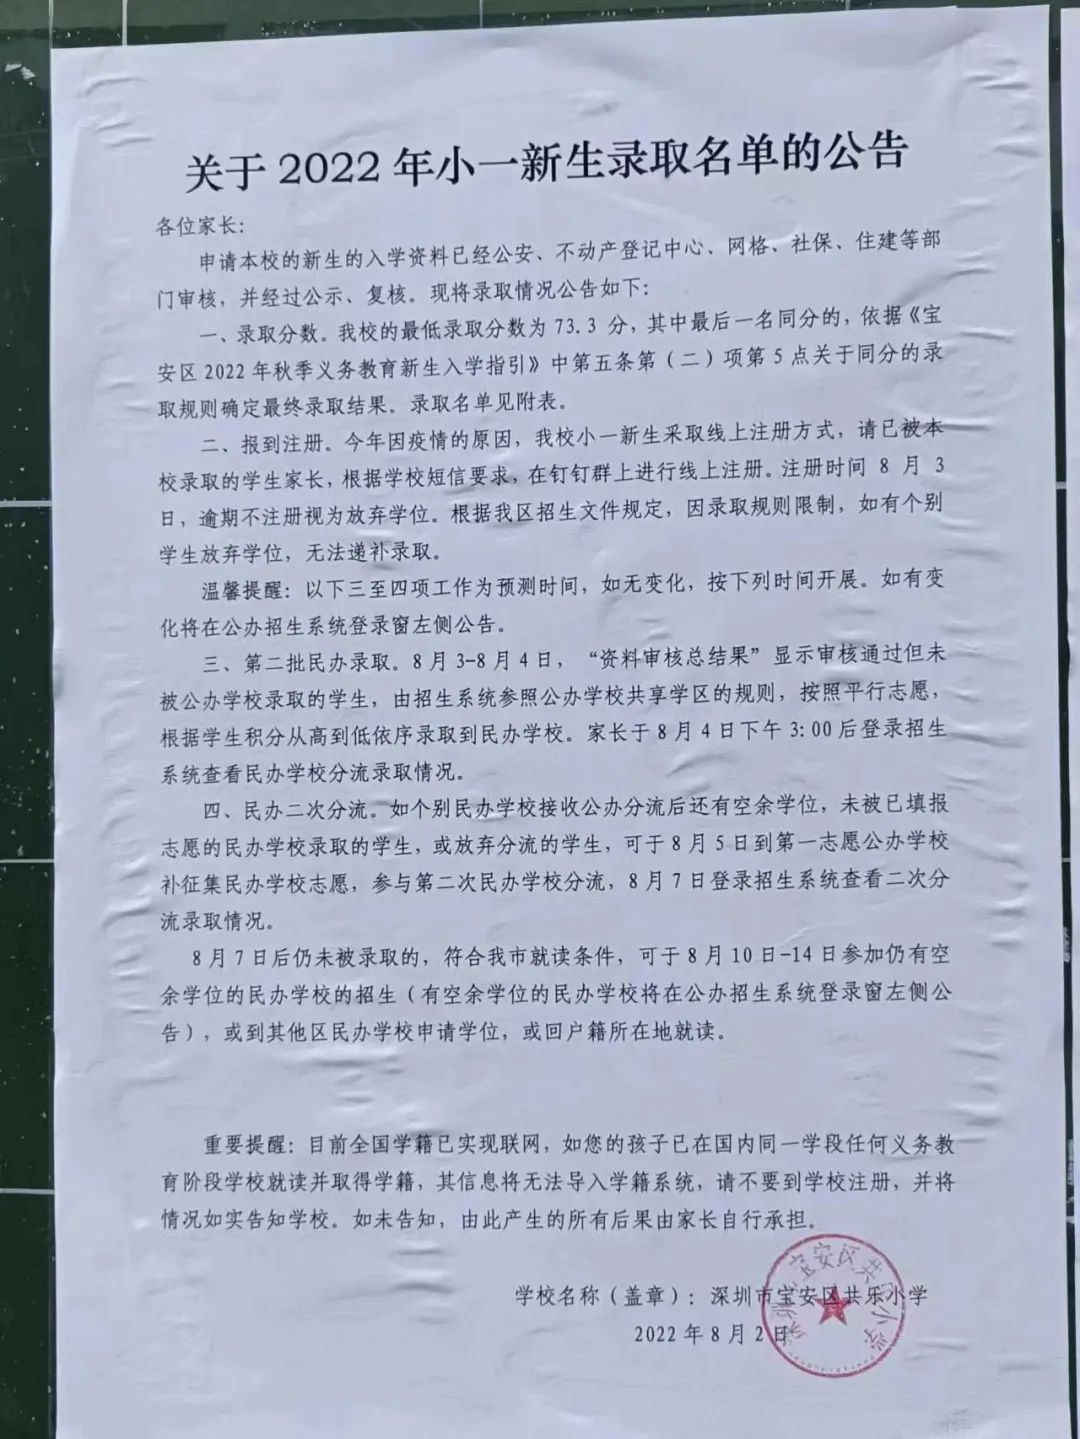 关于 2022 年小一新生录取名单的公告
各位家长：
申请本校的新生的入学资料已经公安、不动产登记中心、网格、社保、住建等部
门审核，并经过公示、复核。现将录取情况公告如下：
一、录取分数。我校的最低录取分数为 73.3 分，其中最后一名同分的，依据《宝
安区 2022 年秋季义务教育新生入学指引》中第五条第（二）项第 5 点关于同分的录
取规则确定最终录取结果。录取名单见附表。
二、报到注册。今年因疫情的原因，我校小一新生采取线上注册方式，请已被本
校录取的学生家长，根据学校短信要求，在钉钉群上进行线上注册。注册时间 8 月 3
日，逾期不注册视为放弃学位。根据我区招生文件规定，因录取规则限制，如有个别
学生放弃学位，无法递补录取。
温馨提醒：以下三至四项工作为预测时间，如无变化，按下列时间开展。如有变
化将在公办招生系统登录窗左侧公告。
三、第二批民办录取。8 月 3-8 月 4 日，“资料审核总结果”显示审核通过但未
被公办学校录取的学生，由招生系统参照公办学校共享学区的规则，按照平行志愿，
根据学生积分从高到低依序录取到民办学校。家长于 8 月 4 日下午 3:00 后登录招生
系统查看民办学校分流录取情况。
四、民办二次分流。如个别民办学校接收公办分流后还有空余学位，未被已填报
志愿的民办学校录取的学生，或放弃分流的学生，可于 8 月 5 日到第一志愿公办学校
补征集民办学校志愿，参与第二次民办学校分流，8 月 7 日登录招生系统查看二次分
流录取情况。
8 月 7 日后仍未被录取的，符合我市就读条件，可于 8 月 10 日-14 日参加仍有空
余学位的民办学校的招生（有空余学位的民办学校将在公办招生系统登录窗左侧公
告），或到其他区民办学校申请学位，或回户籍所在地就读。
重要提醒：目前全国学籍已实现联网，如您的孩子已在国内同一学段任何义务教
育阶段学校就读并取得学籍，其信息将无法导入学籍系统，请不要到学校注册，并将
情况如实告知学校。如未告知，由此产生的所有后果由家长自行承担。
学校名称（盖章）：深圳市宝安区共乐小学
2022 年 8 月 2 日